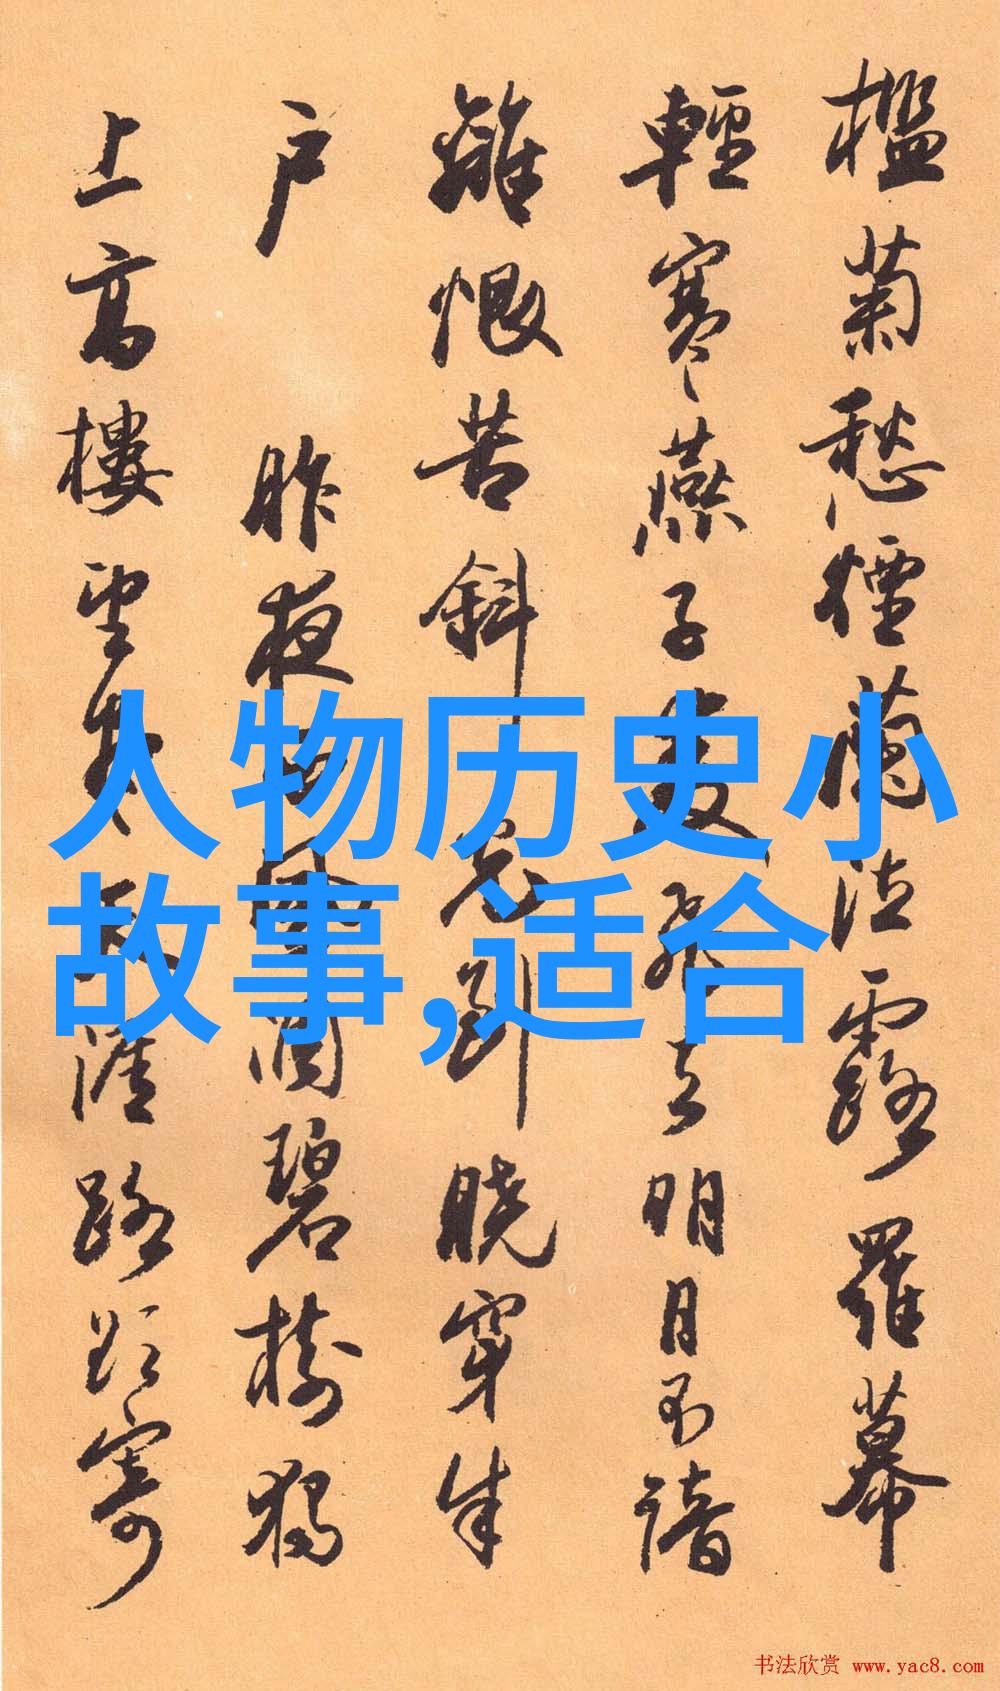 檻菊愁煙蘭泣露羅幕
輕寒燕子雙飛去明月不諳
離恨苦斜光到曉穿朱
户 昨夜西風凋碧樹獨
上高樓望盡天涯路欲寄
人物历史小
故事,适合
书法欣赏 www.yac8.com